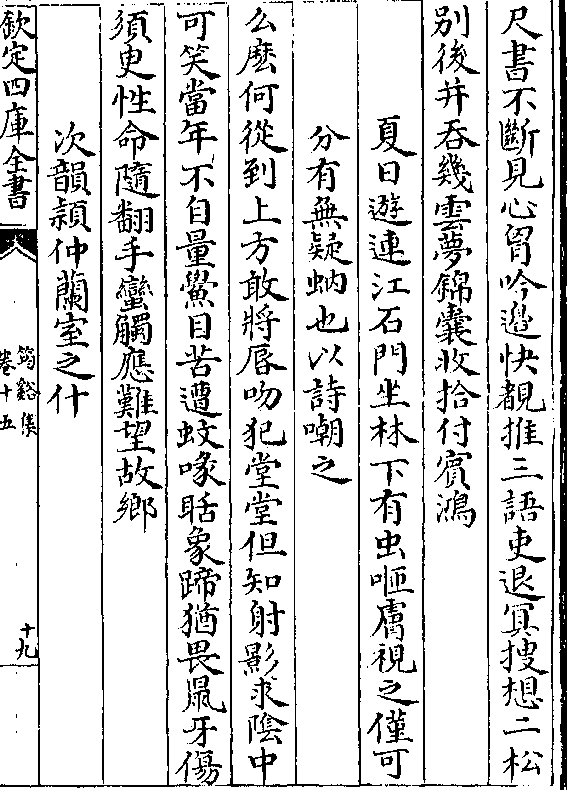 尺書不斷見心胷吟邉快覩推三語吏退冥搜想二松
别後并吞幾雲夢錦囊收拾付賓鴻
夏日遊連江石門坐林下有虫咂膚視之僅可
分有無疑蚋也以詩嘲之
么麽何從到上方敢將唇吻犯堂堂但知射影求陰中
可笑當年不自量鱟目苦遭蚊喙聒象蹄猶畏鼠牙傷
須臾性命隨翻手蠻觸應難望故鄉
次韻潁仲蘭室之什
欽定四庫全書
筠谿集
卷十五
十九